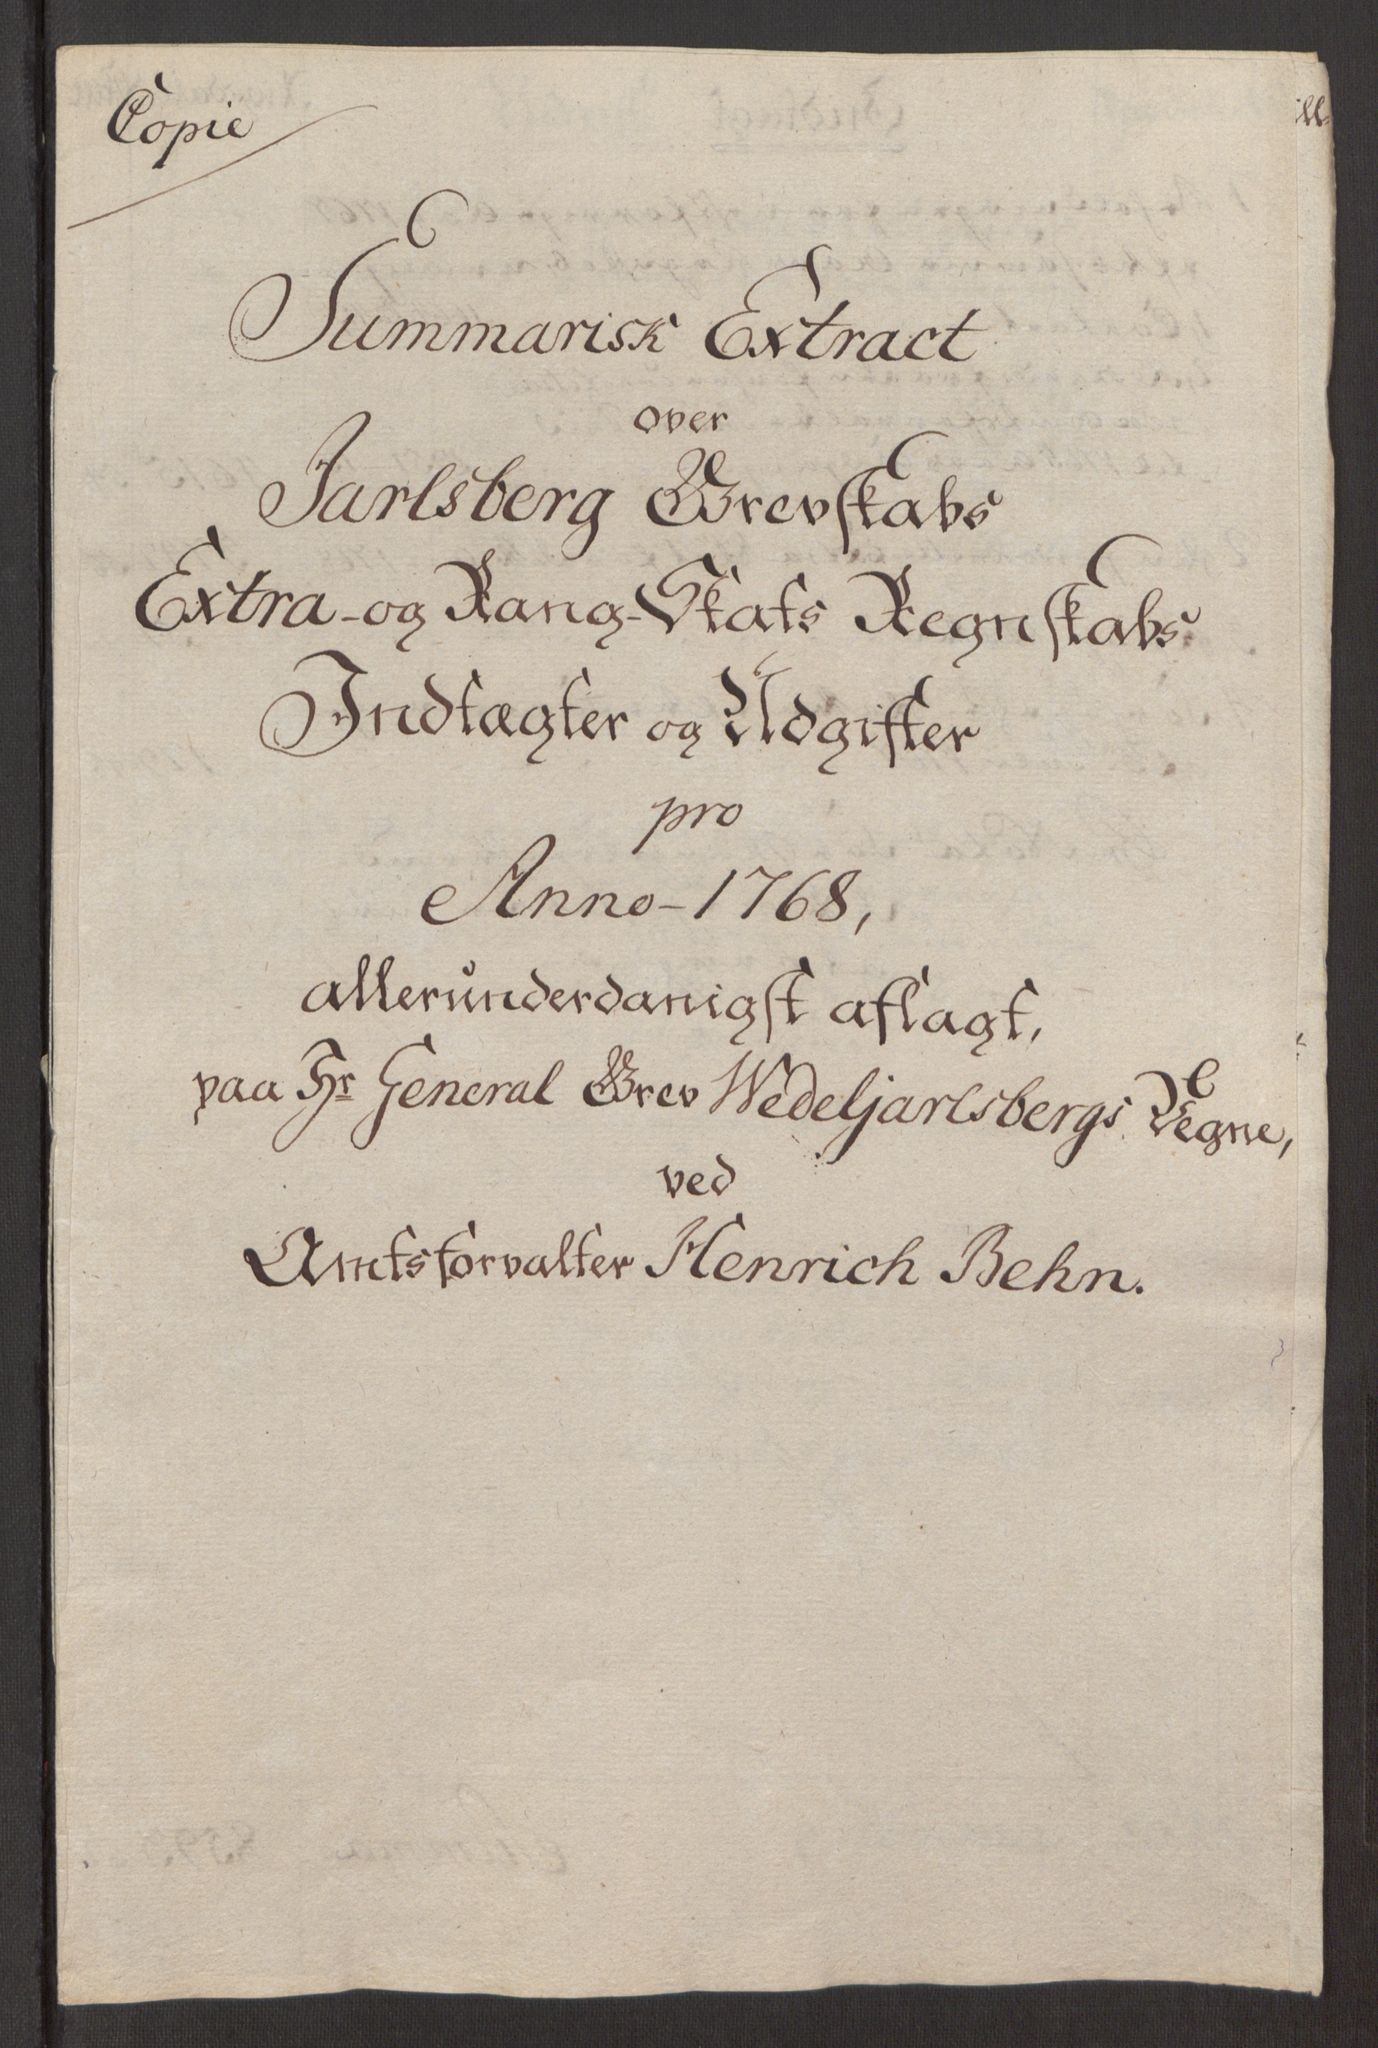 Copie
Summarisk Extract
over
Jarlsberg Grevskabs
Extra- og Rang-Skats Regnskabs
Indtægter og Udgifter
pro
Anno-1768,
allerunderdanigst aflagt,
paa Hr General Grev Wedeljarlsbergs Vegne,
ved
Amtsforvalter Henrich Behn.